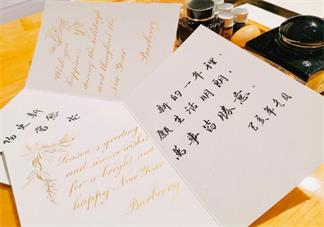 Wish you
happiness
during the holidays
and throughout the
New Year
Burberry
Season's greeting
and sincere wishes
for a bright and
happy New Year
Burberry
新的一年裡,
願生活明朗,
萬事皆勝意.
乙亥年元月